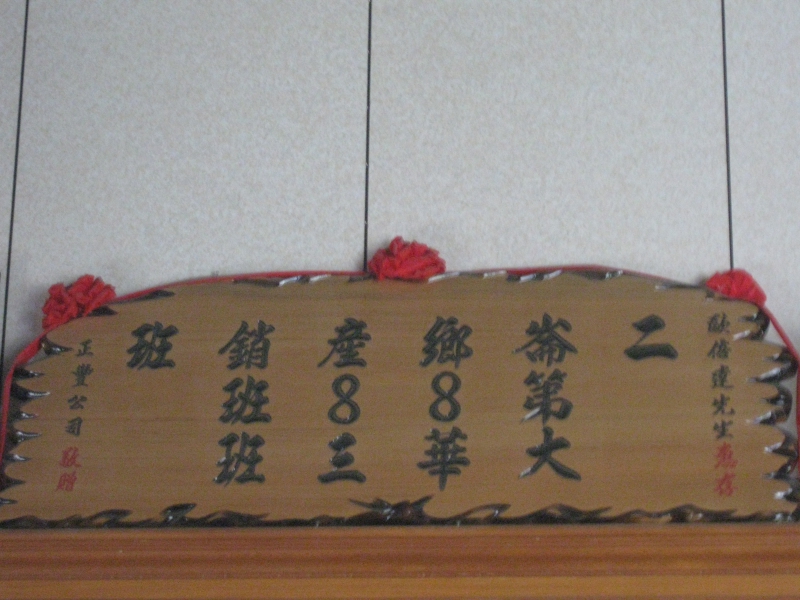 歐倍達先生惠存
二
崙第大
鄉8華
產8三
銷班班
班
正豐公司敬贈